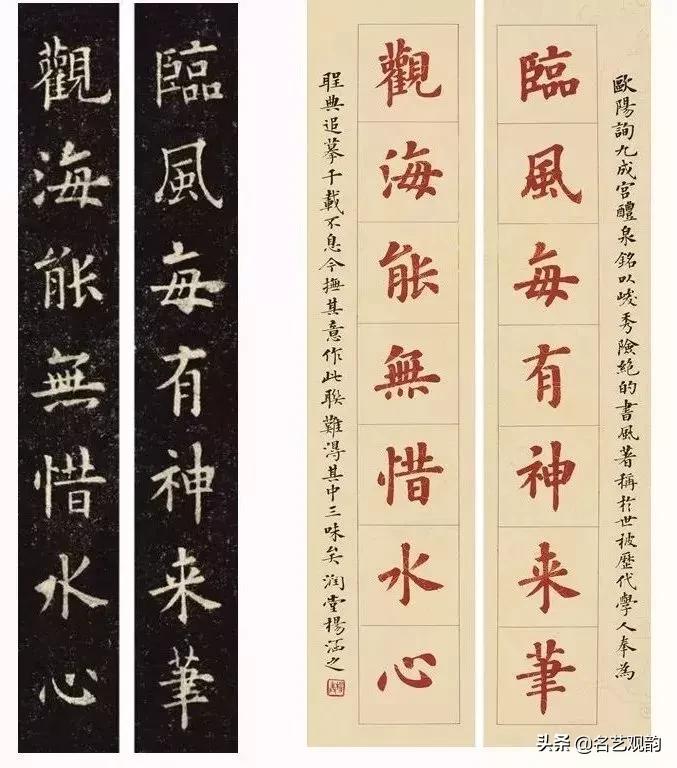 臨風每有神来筆
觀海能無惜水心
歐陽詢九成宫醴泉銘以峻秀險絶的書風著稱於世被歷代學人奉為
臨風每有神来筆
觀海能無惜水心
聖典追摹千載不息今撫其意作此聯難得其中三味矣 润堂楊涵之
头条 @名艺观韵